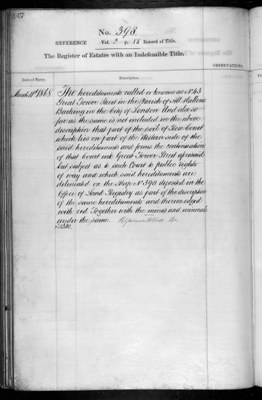 No. 398.
REFERENCE Vol. 2 p. 15 Record of Title.
The Register of Estates with an Indefeasible Title.
Date of Entry. Description. OBSERVATIONS.
March 11th 1868 The hereditaments called or known as No. 43
Great Tower Street in the Parish of All Hallows
Barking in the City of London And also so
far as the same is not included in the above
description that part of the soil of Court
which lies on part of the side of the
said hereditaments and forms the continuation
of that Court into Great Tower Street aforesaid
but subject as to such Court to public rights
of way and which said hereditaments are
delineated on the Map No. 398 deposited in the
Office of Land Registry as part of the description
of the same hereditaments and thereon edged
with red Together with the mines and minerals
under the same.